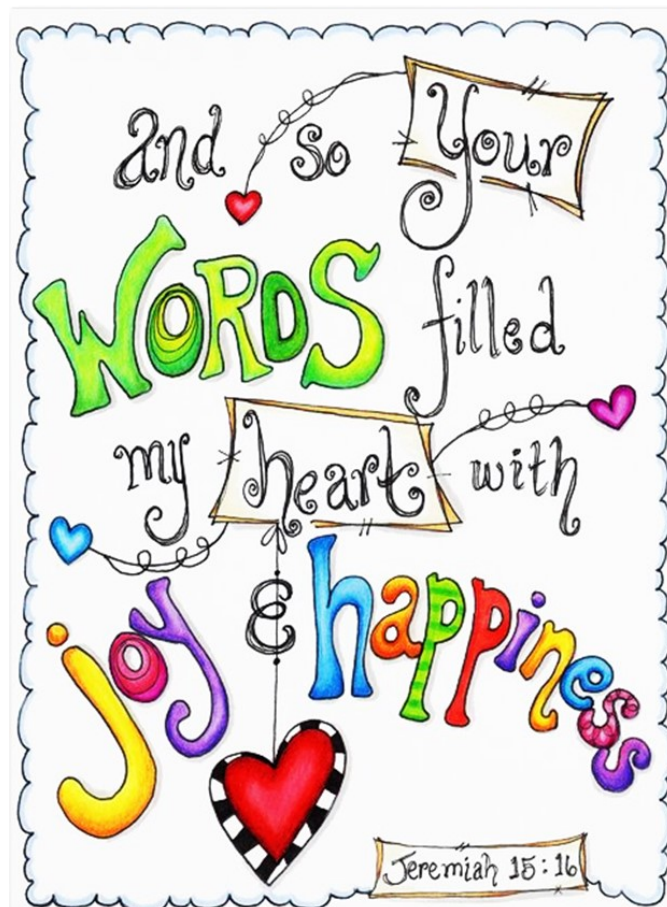 and so Your
WORDS filled
my heart with
joy & happiness
Jeremiah 15:16